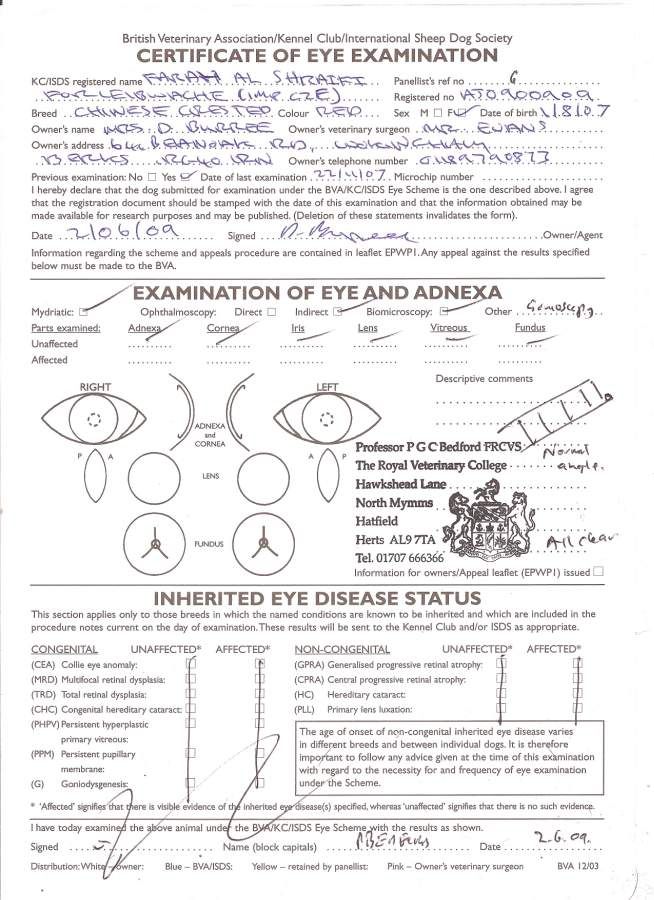 British Veterinary Association/Kennel Club/International Sheep Dog Society
CERTIFICATE OF EYE EXAMINATION
KC/ISDS registered name FARAH AL SHRAIFI Panellist's ref no G
FORLENBWACHE (IMP. CZE) Registered no AJ0900909
Breed CHINESE CRESTED Colour RED Sex M □ F Date of birth 1/8/07
Owner's name MRS. D. Owner's veterinary surgeon MR. EVANS
Owner's address RD, WOKINGHAM
BERKS. RG40 Owner's telephone number 01189790873
Previous examination: No □ Yes Date of last examination 22/11/07 Microchip number
I hereby declare that the dog submitted for examination under the BVA/KC/ISDS Eye Scheme is the one described above. I agree
that the registration document should be stamped with the date of this examination and that the information obtained may be
made available for research purposes and may be published. (Deletion of these statements invalidates the form).
Date 2/06/09 Signed Owner/Agent
Information regarding the scheme and appeals procedure are contained in leaflet EPWP1. Any appeal against the results specified
below must be made to the BVA.
EXAMINATION OF EYE AND ADNEXA
Mydriatic: Ophthalmoscopy: Direct □ Indirect Biomicroscopy: Other Gonioscopy
Parts examined: Adnexa Cornea Iris Lens Vitreous Fundus
Unaffected
Affected
RIGHT LEFT Descriptive comments
ADNEXA
and
CORNEA
Professor P G C Bedford FRCVS Normal
P A LENS A P The Royal Veterinary College angle.
Hawkshead Lane
North Mymms
Hatfield
FUNDUS Herts AL9 7TA All clear
Tel. 01707 666366
Information for owners/Appeal leaflet (EPWP1) issued □
INHERITED EYE DISEASE STATUS
This section applies only to those breeds in which the named conditions are known to be inherited and which are included in the
procedure notes current on the day of examination. These results will be sent to the Kennel Club and/or ISDS as appropriate.
CONGENITAL UNAFFECTED* AFFECTED* NON-CONGENITAL UNAFFECTED* AFFECTED*
(CEA) Collie eye anomaly: (GPRA) Generalised progressive retinal atrophy:
(MRD) Multifocal retinal dysplasia: (CPRA) Central progressive retinal atrophy:
(TRD) Total retinal dysplasia: (HC) Hereditary cataract:
(CHC) Congenital hereditary cataract: (PLL) Primary lens luxation:
(PHPV) Persistent hyperplastic
primary vitreous:
(PPM) Persistent pupillary
membrane:
(G) Goniodysgenesis:
The age of onset of non-congenital inherited eye disease varies
in different breeds and between individual dogs. It is therefore
important to follow any advice given at the time of this examination
with regard to the necessity for and frequency of eye examination
under the Scheme.
* 'Affected' signifies that there is visible evidence of the inherited eye disease(s) specified, whereas 'unaffected' signifies that there is no such evidence.
I have today examined the above animal under the BVA/KC/ISDS Eye Scheme with the results as shown.
Signed Name (block capitals) Date 2.6.09.
Distribution: White – owner: Blue – BVA/ISDS: Yellow – retained by panellist: Pink – Owner's veterinary surgeon BVA 12/03